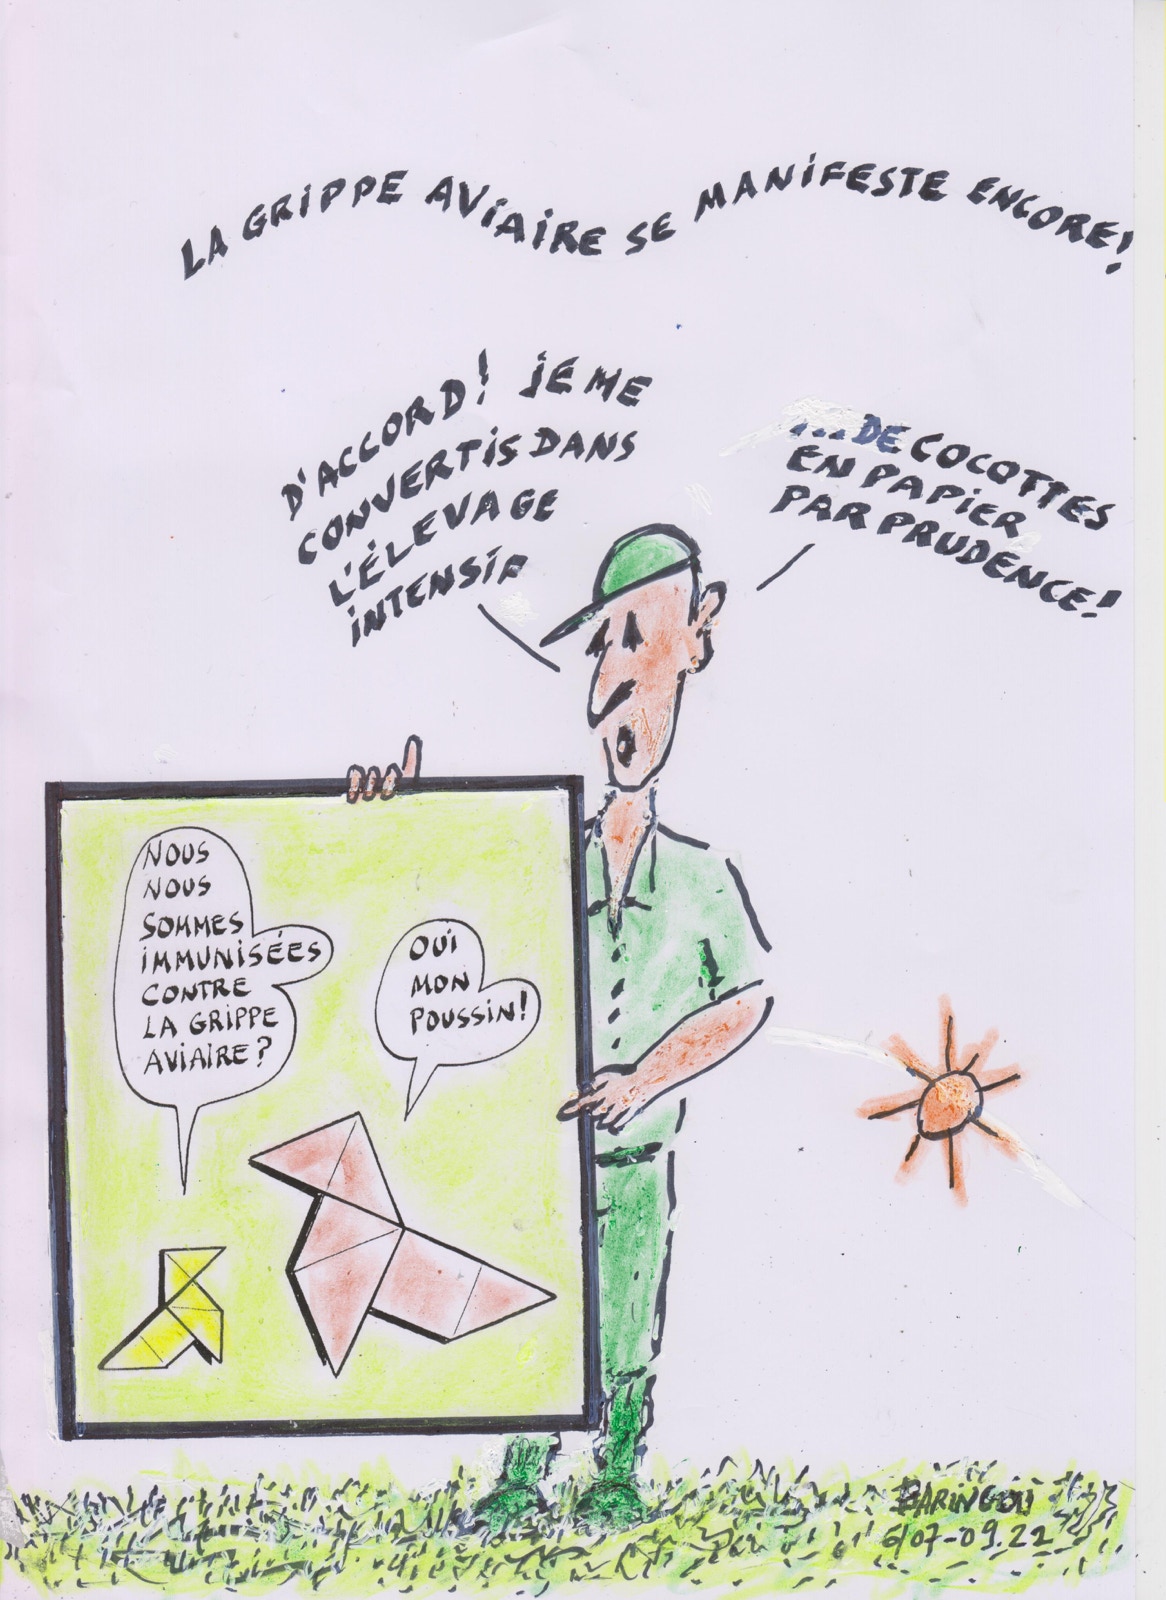 LA GRIPPE AVIAIRE SE MANIFESTE ENCORE!
D'ACCORD! JE ME
CONVERTIS DANS
L'ÉLEVAGE
INTENSIF
... DE COCOTTES
EN PAPIER
PAR PRUDENCE!
NOUS
NOUS
SOMMES
IMMUNISÉES
CONTRE
LA GRIPPE
AVIAIRE?
OUI
MON
POUSSIN!
BARINGOU
6/07-09.22